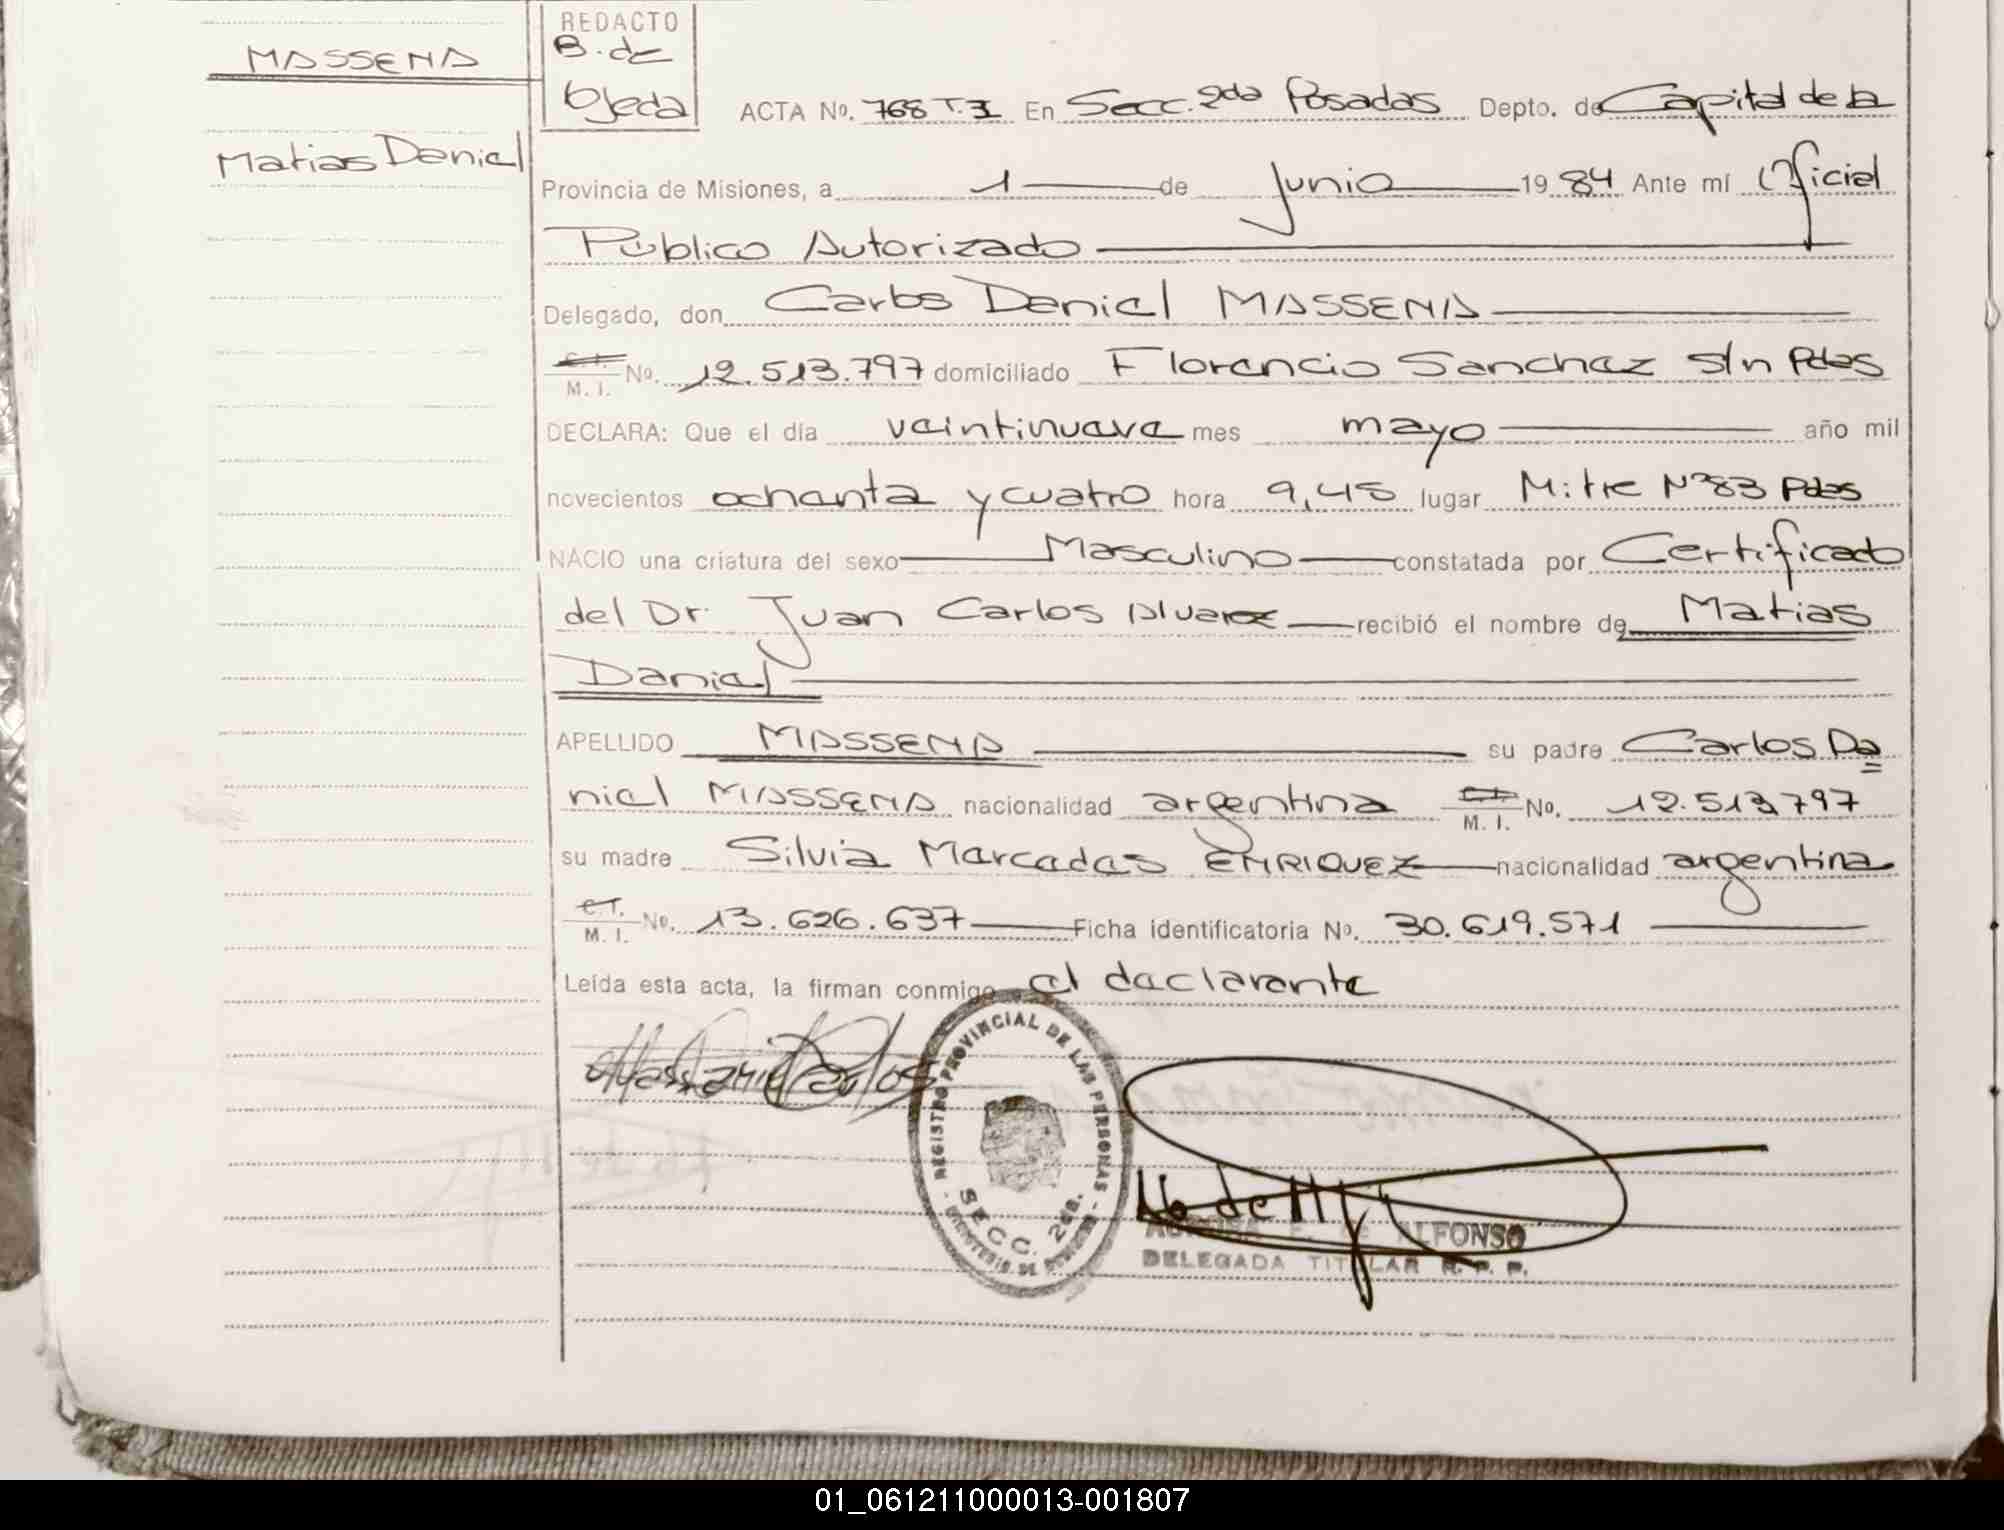 MASSENA
Matias Daniel
REDACTO
B. de
Ojeda
ACTA No. 768 T.3 En Secc. 2da Posadas Depto. de Capital de la
Provincia de Misiones, a 1 de Junio 19 84 Ante mí Oficial
Público Autorizado
Delegado, don Carlos Daniel MASSENA
C.I. M. I. No. 12.513.797 domiciliado Florencio Sanchez s/n Pdas
DECLARA: Que el día veintinueve mes mayo año mil
novecientos ochenta y cuatro hora 9,45 lugar Mitre Nº 83 Pdas
NACIO una criatura del sexo Masculino constatada por Certificado
del Dr. Juan Carlos Alvarez recibió el nombre de Matias
Daniel
APELLIDO MASSENA su padre Carlos Da
niel MASSENA nacionalidad argentina C.I. M. I. No. 12.513.797
su madre Silvia Mercedes ENRIQUEZ nacionalidad argentina
C.I. M. I. No. 13.626.637 Ficha identificatoria No. 30.619.571
Leída esta acta, la firman conmigo el declarante
Massena Carlos
REGISTRO PROVINCIAL DE LAS PERSONAS
SECC. 2da.
ALFONSO
DELEGADA TITULAR R. P. P.
01_061211000013-001807